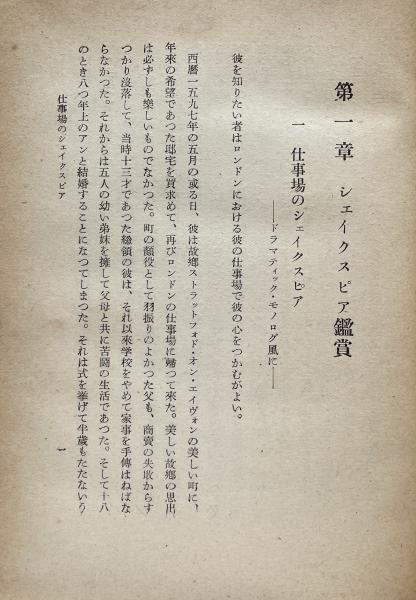 第一章 シェイクスピア鑑賞
一 仕事場のシェイクスピア
――ドラマティック・モノログ風に――
彼を知りたい者はロンドンにおける彼の仕事場で彼の心をつかむがよい。
西暦一五九七年の五月の或る日、彼は故郷ストラットフォド・オン・エイヴォンの美しい町に、
年來の希望であつた邸宅を買求めて、再びロンドンの仕事場に歸つて來た。美しい故郷の思出
は必ずしも樂しいものでなかつた。町の顏役として羽振りのよかつた父も、商賣の失敗からす
つかり沒落して、当時十三才であつた總領の彼は、それ以來学校をやめて家事を手傳はねばな
らなかつた。それからは五人の幼い弟妹を擁して父母と共に苦鬪の生活であつた。そして十八
のとき八つ年上のアンと結婚することになつてしまつた。それは式を挙げて半歳もたたないう
仕事場のシェイクスピア
一